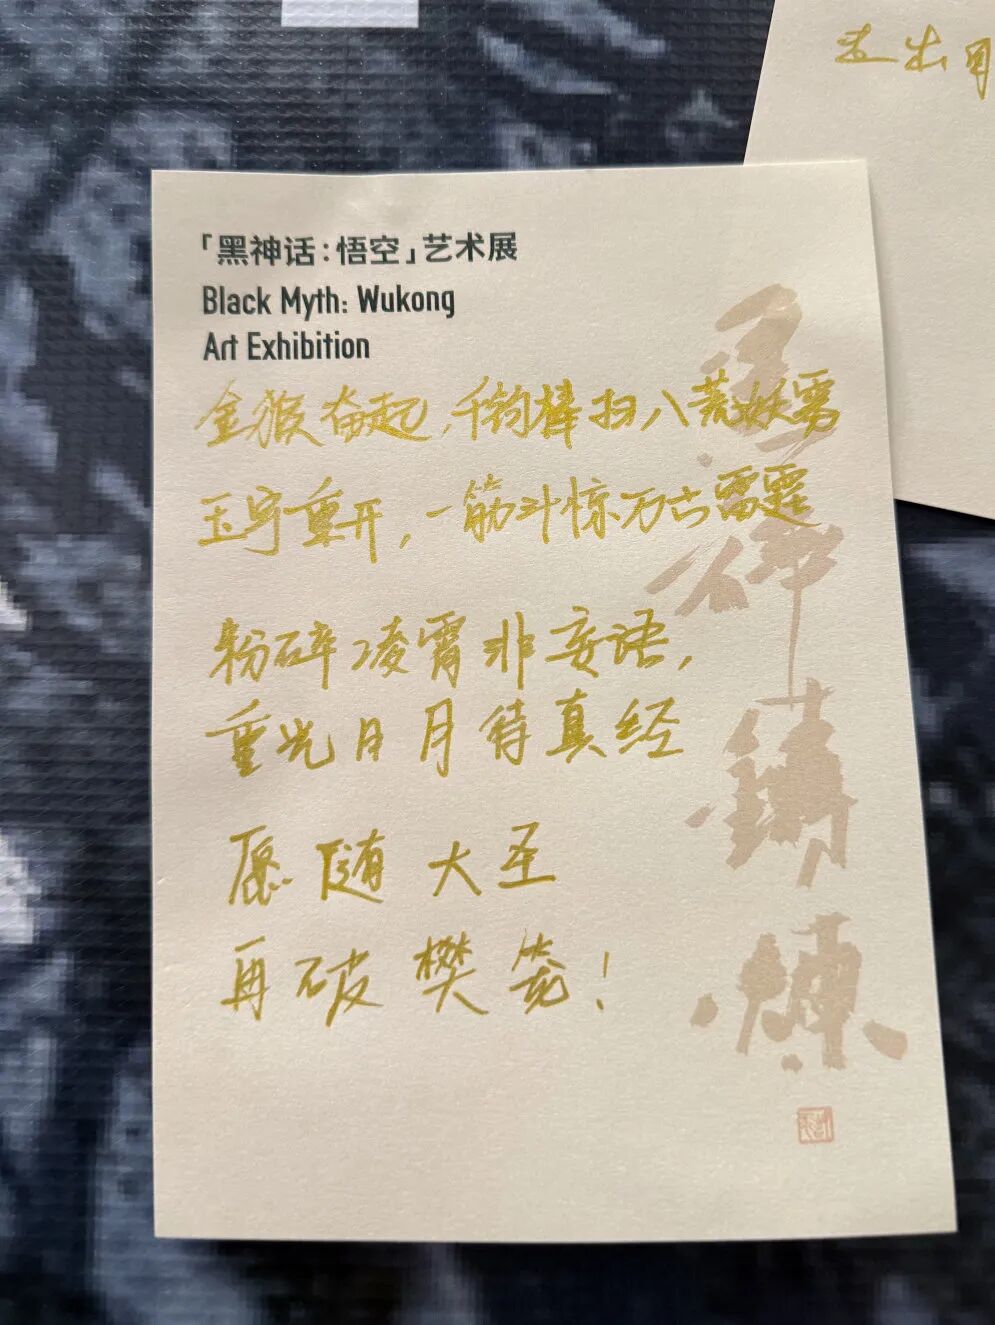 走出
「黑神话：悟空」艺术展
Black Myth: Wukong
Art Exhibition
金猴奋起，千钧棒扫八荒妖雾
玉宇重开，一筋斗惊万古雷霆
粉碎凌霄非妄语，
重光日月待真经
愿随大圣
再破樊笼！